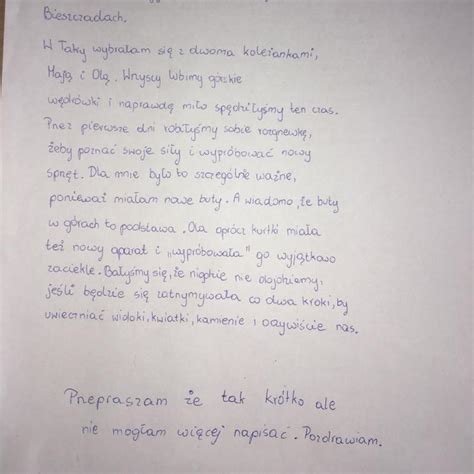 Bieszczadach.
W Tatry wybrałam się z dwoma koleżankami,
Mają i Olą. Wszyscy lubimy górskie
wędrówki i naprawdę miło spędziłyśmy ten czas.
Przez pierwsze dni robiłyśmy sobie rozgrzewkę,
żeby poznać swoje siły i wypróbować nowy
sprzęt. Dla mnie było to szczególnie ważne,
ponieważ miałam nowe buty. A wiadomo, że buty
w górach to podstawa. Ola oprócz kurtki miała
też nowy aparat i „wypróbowała" go wyjątkowo
zaciekle. Bałyśmy się, że nigdzie nie dojdziemy,
jeśli będzie się zatrzymywała co dwa kroki, by
uwieczniać widoki, kwiatki, kamienie i oczywiście nas.
Przepraszam że tak krótko ale
nie mogłam więcej napisać. Pozdrawiam.